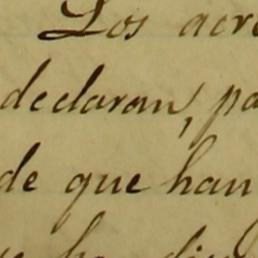 Los acre
declaran, pa
de que han